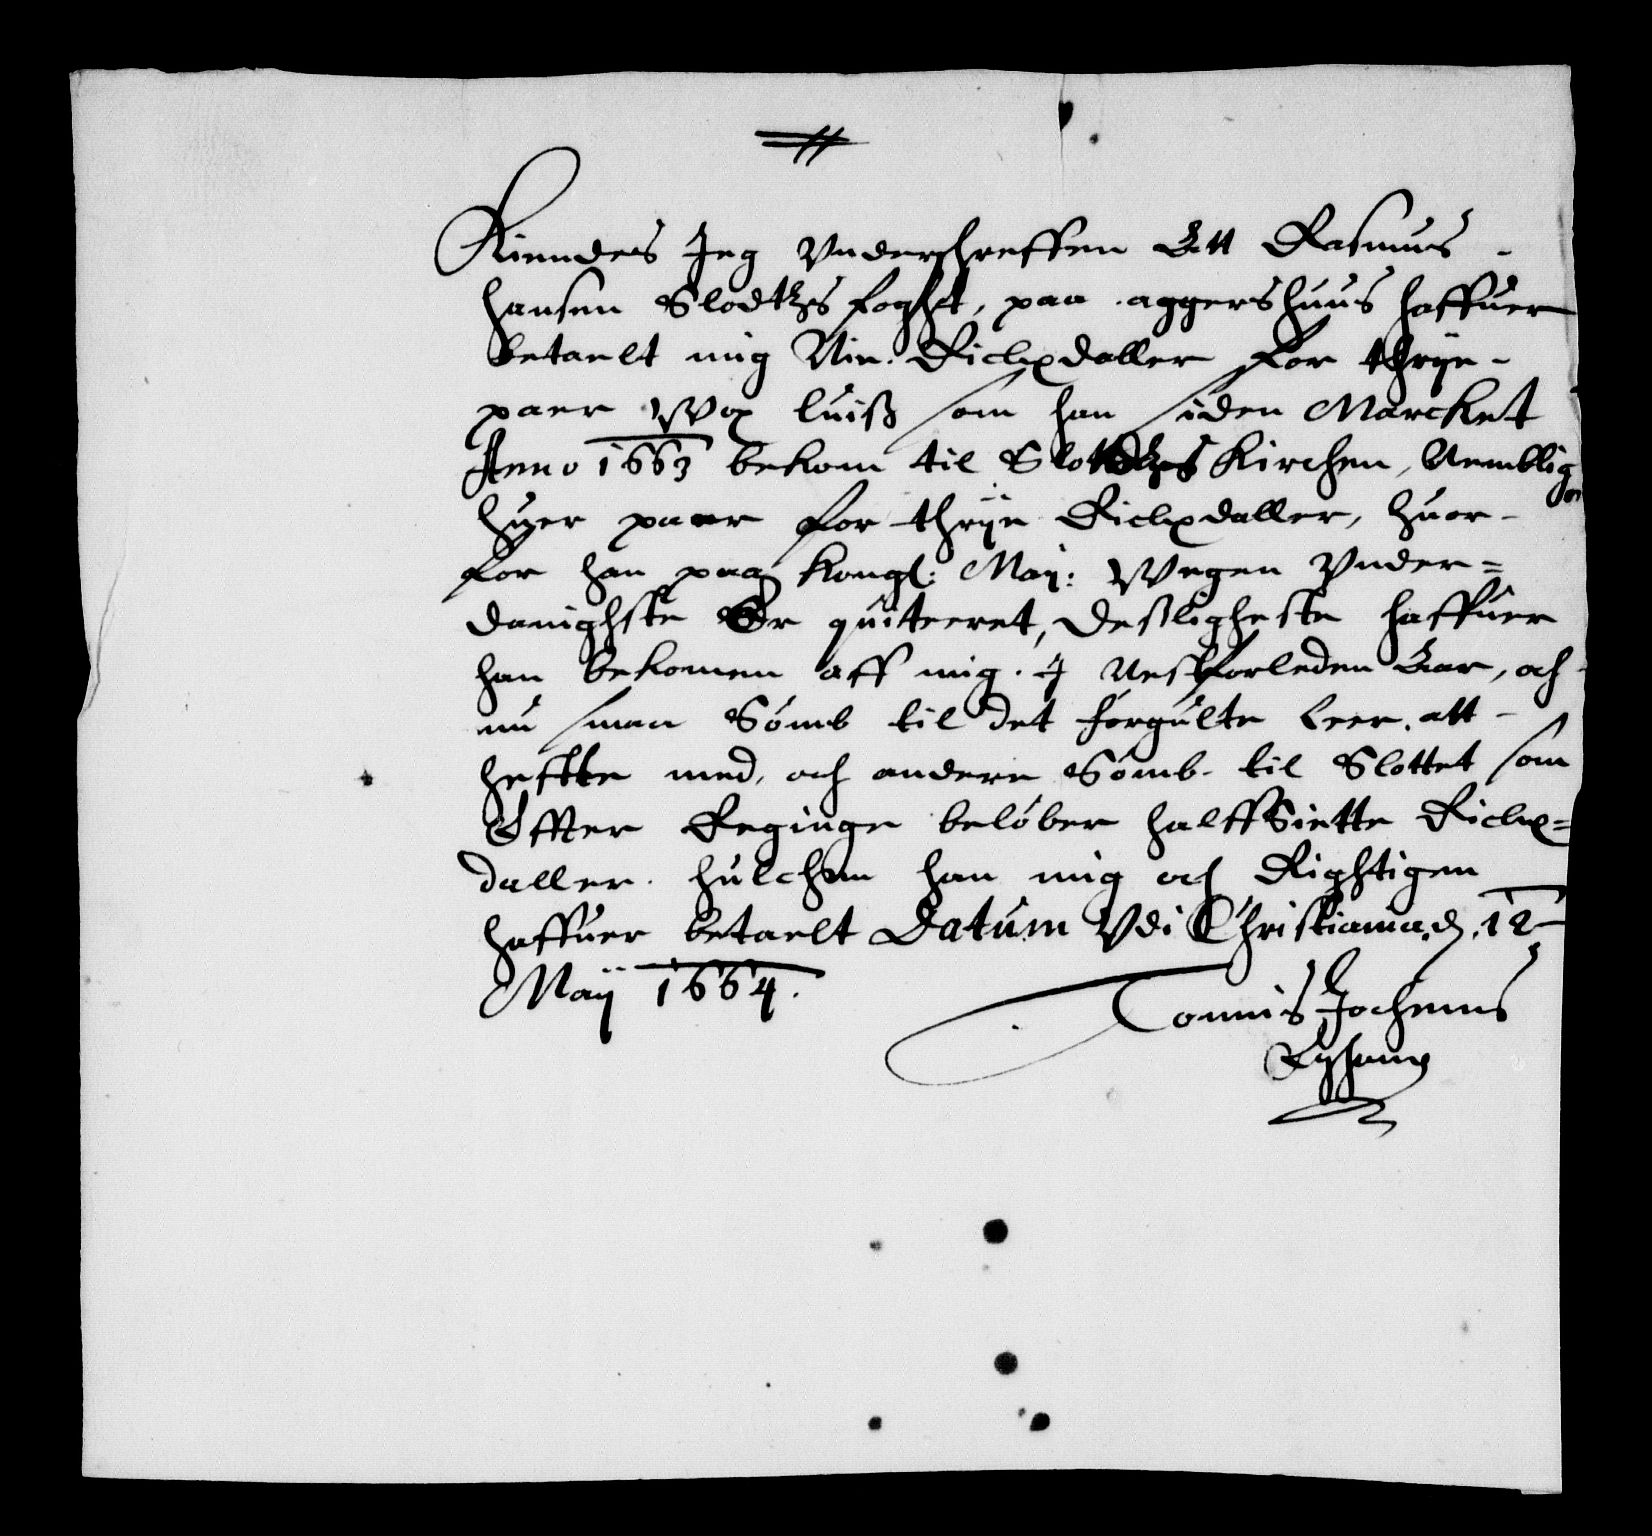 Kiendes Jeg Vnderschreffen Att Rasmus
hansen Slodtzs foght, paa aggershuus haffuer
betaelt mig Nie Richxdaller for thrye
paer Wox luiß som han siden Marcket
Anno 1663 bekom til Slottetzs Kirchen, Nemblig
huer paer for thrye Richxdaller, huor-
for han paa Kongl: May: Wegen Vnder=
danighste Er quiteeret, deßligheste haffuer
han bekomen aff mig. J Nestforleden Aar, och
nu smaa Sömb til det forgülte Leer. att
heffte med, och andere Sömb til Slottet som
Effter Regninge belöber halffSiette Richx=
daller. hulchen han mig och Rightigen
haffuer betaelt Datum Vdi Christiania d. 12
Maij 1664.
Tonnis Jochems